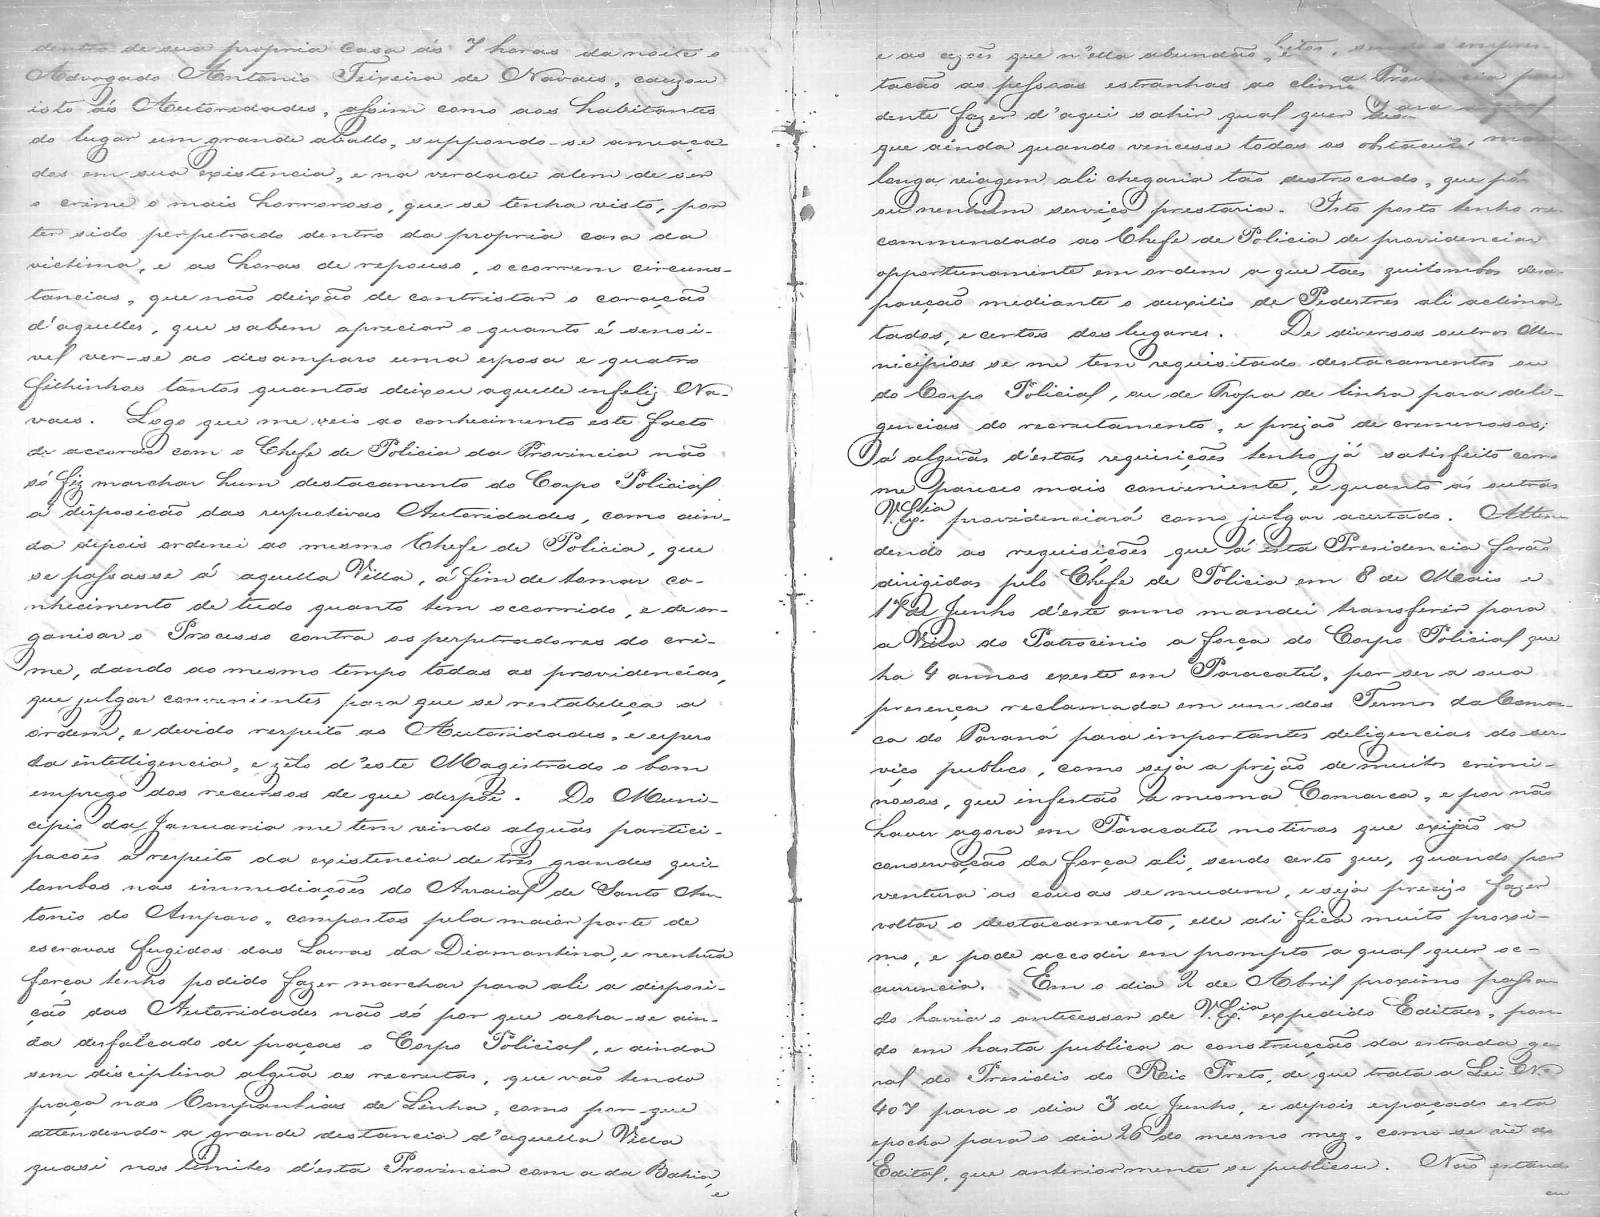 dentro de sua propria Casa ás 7 horas da noite o
Advogado Antonio Teixeira de Navaes, cauzou
isto ás Autoridades, assim como aos habitantes
do lugar um grande aballo, suppondo-se ameaça-
dos em sua existencia, e na verdade alem de ser
o crime o mais horroroso, que se tenha visto, por
ter sido perpetrado dentro da propria casa da
victima, e as horas de repouso, occorrem circuns-
tancias, que não deixão de contristar o coração
d'aquelles, que sabem apreciar o quanto é sensi-
vel ver-se ao desamparo uma esposa e quatro
filhinhos tantos quantos deixou aquelle infeliz Na-
vaes. Logo que me veio ao conhecimento este facto
de accordo com o Chefe de Policia da Provincia não
só fiz marchar hum destacamento do Corpo Policial
á disposicão das respectivas Autoridades, como ain-
da depois ordenei ao mesmo Chefe de Policia, que
se passasse á aquella Villa, á fim de tomar co-
nhecimento de tudo quanto tem occorrido, e de or-
ganisar o Processo contra os perpetradores do cri-
me, dando ao mesmo tempo todas as providencias,
que julgar convenientes para que se restabeleça a
ordem, e devido respeito as Autoridades, e espero
da intelligencia, e zêlo d'este Magistrado o bom
emprego dos recursos de que dispõe. Do Muni-
cipio da Januaria me tem vindo algũas partici-
pacões a respeito da existencia de tres grandes qui-
lombos nas immediações do Arraial de Santo An-
tonio do Amparo, compostos pela maior parte de
escravos fugidos das Lavras da Diamantina, e nenhũa
força tenho podido fazer marchar para ali a disposi-
ção das Autoridades não só por que acha-se ain-
da desfalcado de praças o Corpo Policial, e ainda
sem disciplina algũa os recrutas, que vão tendo
praça nas Companhias de Linha, como por-que
attendendo-a grande distancia d'aquella Villa
quasi nos limites d'esta Provincia com a da Bahia,
e
e as cezões que n'ella abundão,
tacão as pessoas estranhas ao clima
dente fazer d'aqui sahir qual quer
que ainda quando vencesse todos os obstaculos,
longa viagem ali chegaria tão destroçado, que pôr
ou nenhum serviço prestaria. Isto posto tenho re-
commendado ao Chefe de Policia de providenciar
opportunamente em ordem a que taes quilombos desa-
pareção mediante o auxilio de Pedestres ali aclima-
tados, e certos dos lugares. De diversos outros Mu-
nicipios se me tem requisitado destacamentos ou
do Corpo Policial, ou de Tropa de linha para deli-
gencias do recrutamento, e prizão de creminosos;
á algũas d'estas requisições tenho já satisfeito como
me pareceo mais conveniente, e quanto ás outras
V. Ex.cia providenciará como julgar acertado. Atten-
dendo as requisições que á esta Presidencia forão
dirigidas pelo Chefe de Policia em 8 de Maio e
17 de Junho d'este anno mandei transferir para
a Villa do Patrocinio a força do Corpo Policial que
ha 4 annos existe em Paracatú, por ser a sua
presença reclamada em um dos Termos da Comar-
ca do Paraná para importantes deligencias do ser-
viço publico, como seja a prizão de muitos crimi-
nosos, que infestão a mesma Comarca, e por não
haver agora em Paracatú motivos que exijão a
conservação da força ali, sendo certo que, quando por
ventura as cousas se mudem, e seja precizo fazer
voltar o destacamento, elle ali fica muito proxi-
mo, e pode accodir em prompto a qual quer oc-
currencia. Em o dia 2 de Abril proximo passa-
do havia o antecessor de V. Ex.cia expedido Editaes, pon-
do em hasta publica a construcção da estrada ge-
ral do Presidio do Rio Preto, de que trata a Lei N.o
407 para o dia 3 de Junho, e depois espaçado esta
epocha para o dia 26 do mesmo mez, como se vê do
Edital, que anteriormente se publicou. Não estando
em